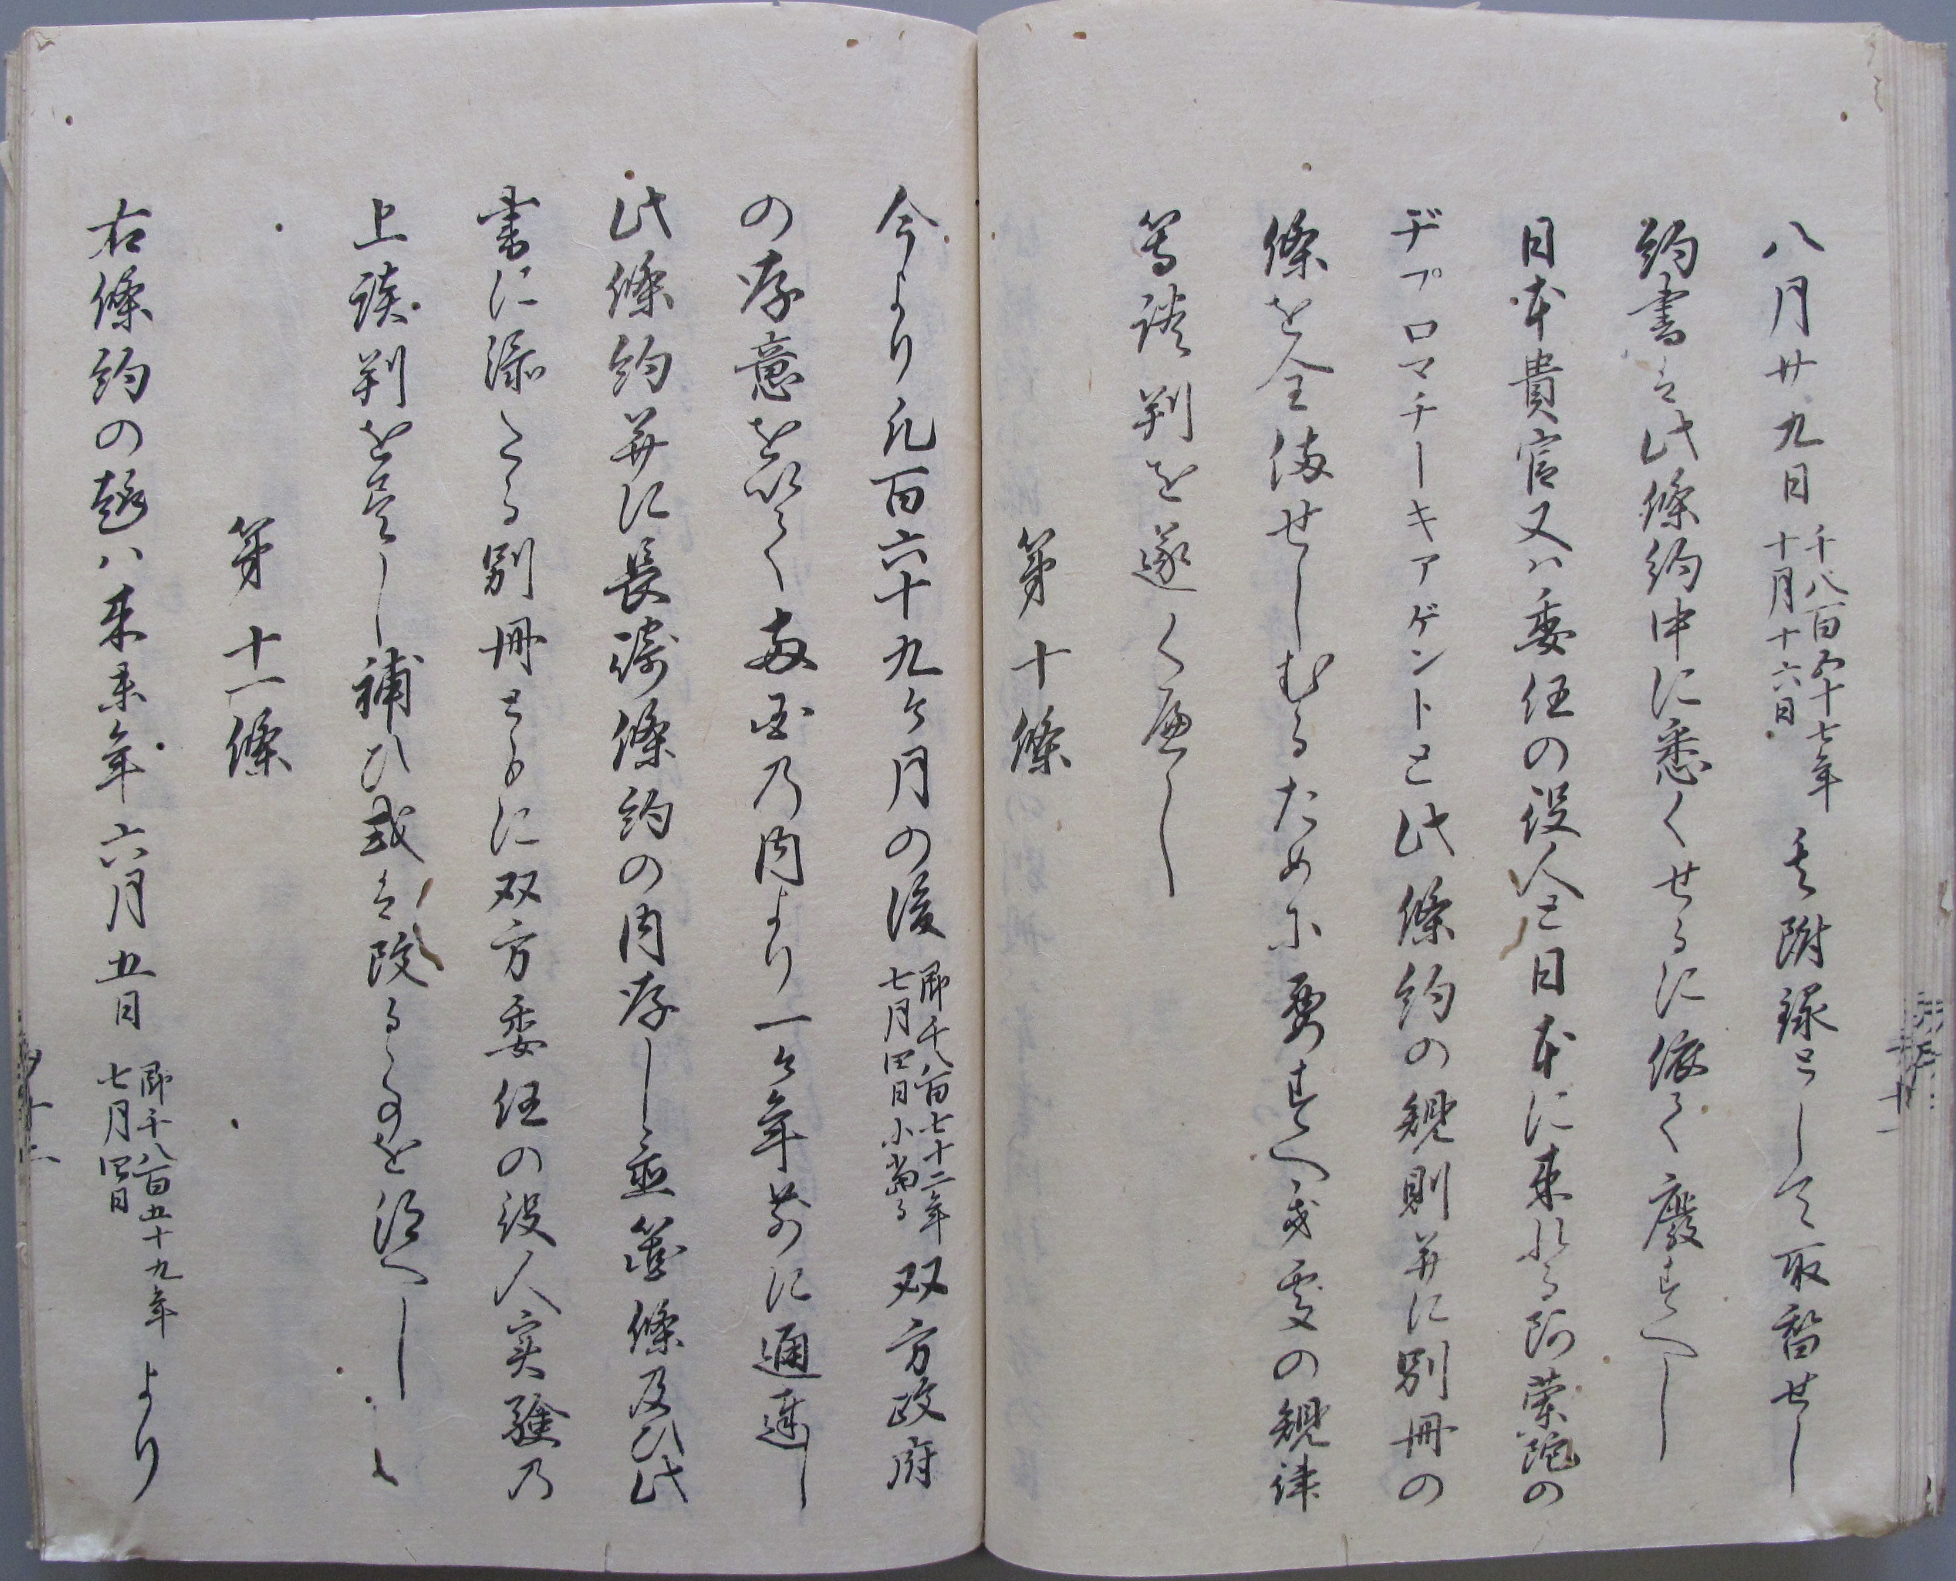 八月廿九日千八百五十七年十月十六日其附録として取替せし
約書は此條約中に悉くせるに依て廢すへし
日本貴官又ハ委任の役人と日本に來れる阿蘭陀の
ヂプロマチーキアゲントと此條約の規則并に別冊の
條を全備せしむるために要すへき處の規律
等談判を遂くへし
第十條
今より凡百六十九ケ月の後即千八百七十二年七月四日に當る双方政府
の存意を以て両国乃内より一ケ年前に通達し
此條約并に長崎條約の内存し置箇條及ひ此
書に添たる別冊ともに双方委任の役人実験乃
上談判を尽し補ひ或は改る事を得へし
第十一條
右條約の趣ハ来未年六月五日即千八百五十九年七月四日より